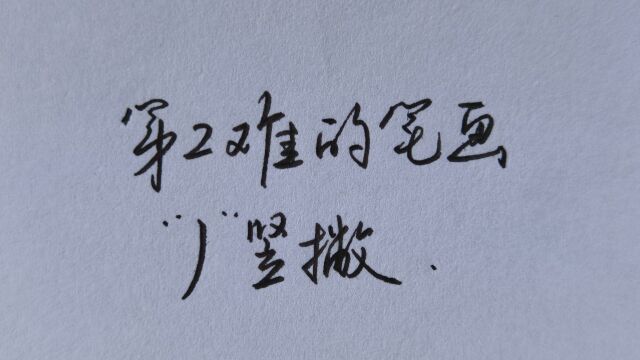 第2难的笔画
"丿"竖撇.